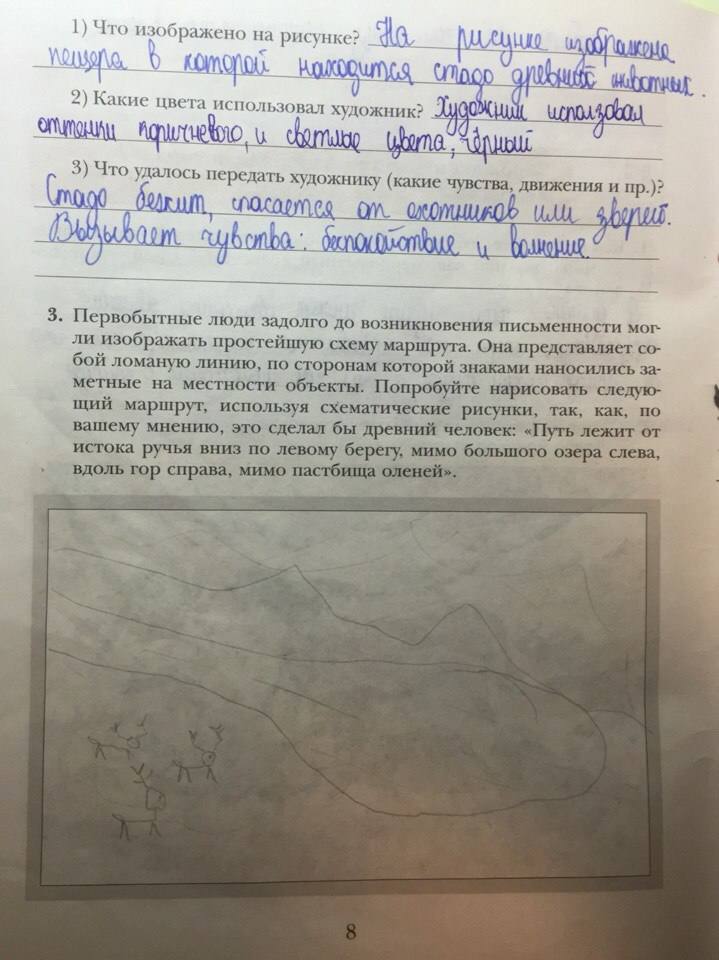 1) Что изображено на рисунке? На рисунке изображена
пещера в которой находится стадо древних животных.
2) Какие цвета использовал художник? Художник исползовал
оттенки коричневого, и светлые цвета, чёрный
3) Что удалось передать художнику (какие чувства, движения и пр.)?
Стадо безжит, спасается от охотников или зверей.
Вызывает чувства: беспокойствие и волнение.
3. Первобытные люди задолго до возникновения письменности мог-
ли изображать простейшую схему маршрута. Она представляет со-
бой ломаную линию, по сторонам которой знаками наносились за-
метные на местности объекты. Попробуйте нарисовать следую-
щий маршрут, используя схематические рисунки, так, как, по
вашему мнению, это сделал бы древний человек: «Путь лежит от
истока ручья вниз по левому берегу, мимо большого озера слева,
вдоль гор справа, мимо пастбища оленей».
8